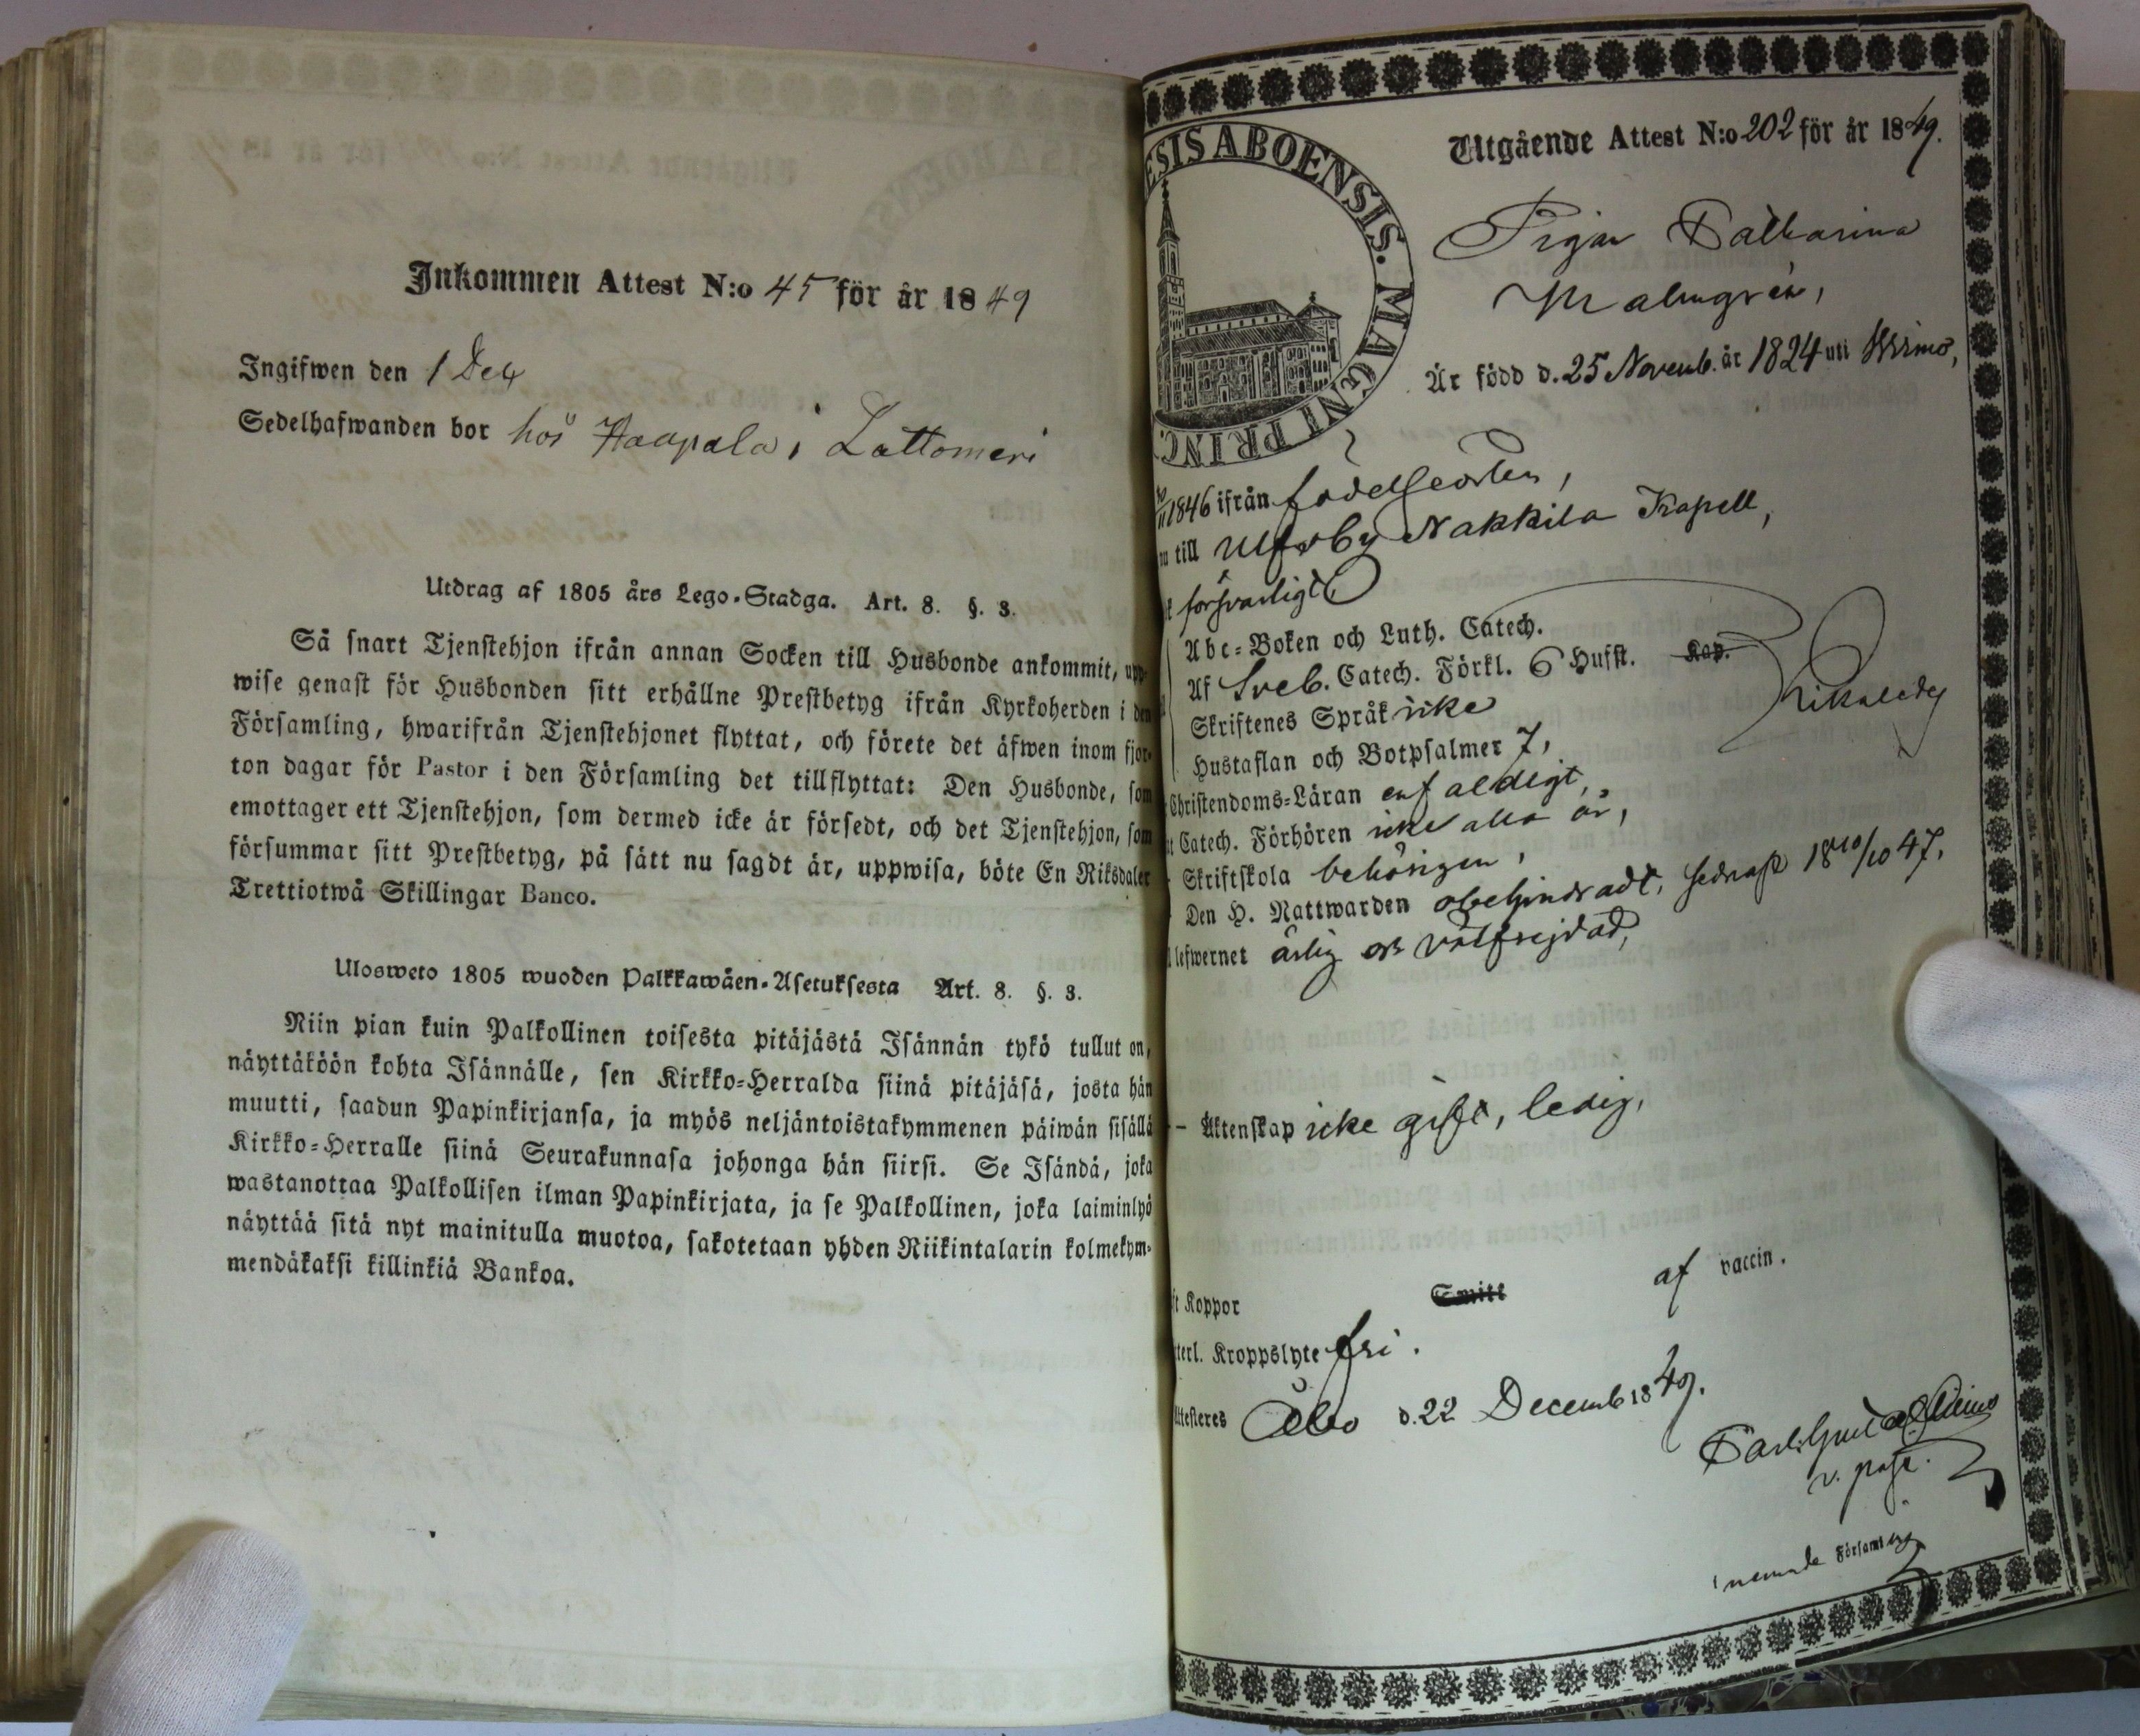 Inkommen Attest N:o 45 för år 1849
Ingifwen den 1 Dec
Sedelhafwanden bor hos Haapala i Lattomeri
Utdrag af 1805 års Lego-Stadga. Art. 8. §. 3.
Så snart Tjenstehjon ifrån annan Socken till Husbonde ankommit, upp-
wise genast för Husbonden sitt erhållne Prestbetyg ifrån Kyrkoherden i den
Församling, hwarifrån Tjenstehjonet flyttat, och förete det äfwen inom fjor-
ton dagar för Pastor i den Församling det tillflyttat: Den Husbonde, som
emottager ett Tjenstehjon, som dermed icke är försedt, och det Tjenstehjon, som
försummar sitt Prestbetyg, på sätt nu sagdt är, uppwisa, böte En Riksdaler
Trettiotwå Skillingar Banco.
Ulosweto 1805 wuoden Palkkawäen-Asetuksesta Art. 8. §. 3.
Niin pian kuin Palkollinen toisesta pitäjästä Isännän tykö tullut on,
näyttäköön kohta Isännälle, sen Kirkko-Herralda siinä pitäjäsä, josta hän
muutti, saadun Papinkirjansa, ja myös neljäntoistakymmenen päiwän sisällä
Kirkko-Herralle siinä Seurakunnasa johonga hän siirsi. Se Isändä, joka
wastanottaa Palkollisen ilman Papinkirjata, ja se Palkollinen, joka laiminlyö
näyttää sitä nyt mainitulla muotoa, sakotetaan yhden Riikintalarin kolmekym-
mendäkaksi killinkiä Bankoa.
ESIS ABOENSIS. MAGNI PRINC.
Utgående Attest N:o 202 för år 1849.
Pigan Catharina
Malmgrén,
Är född d. 25 Novemb. år 1824 uti Wirmo,
1846 ifrån födelseorten,
till Ulfsby Nakkila Kapell,
försvarligt
Abc-Boken och Luth. Catech.
Af Sveb. Catech. Förkl. 6 Hufst. Kap.
Skriftenes Språk icke
Hustaflan och Botpsalmer 7,
Christendoms-Läran enfaldigt,
Catech. Förhören icke alla år,
Skriftskola behörigen,
Den H. Nattwarden obehindradt, sednast 18 10/10 47.
lefwernet ärlig och välfrejdad,
Äktenskap icke gift, ledig,
Koppor Smitt af vaccin.
Kroppslyte fri.
Attesteres Åbo d. 22 Decemb 1849.
v. past.
Församling